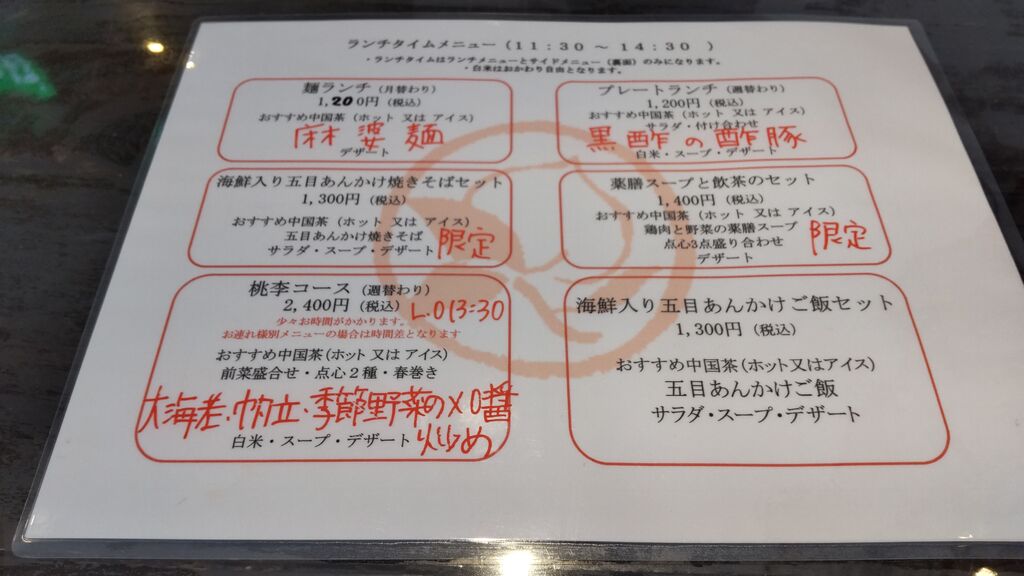 ランチタイムメニュー（11：30 ～ 14：30 ）
・ランチタイムはランチメニューとサイドメニュー（裏面）のみになります。
・白米はおかわり自由となります。
麺ランチ（月替わり）
1,200円（税込）
おすすめ中国茶（ホット 又は アイス）
麻婆麺
デザート
プレートランチ（週替わり）
1,200円（税込）
おすすめ中国茶（ホット 又は アイス）
サラダ・付け合わせ
黒酢の酢豚
白米・スープ・デザート
海鮮入り五目あんかけ焼きそばセット
1,300円（税込）
おすすめ中国茶（ホット 又は アイス）
五目あんかけ焼きそば
サラダ・スープ・デザート
限定
薬膳スープと飲茶のセット
1,400円（税込）
おすすめ中国茶（ホット 又は アイス）
鶏肉と野菜の薬膳スープ
点心3点盛り合わせ
デザート
限定
桃李コース（週替わり）
2,400円（税込）
L.O13:30
少々お時間がかかります。
お連れ様別メニューの場合は時間差となります
おすすめ中国茶（ホット 又は アイス）
前菜盛合せ・点心２種・春巻き
大海老・帆立・季節野菜のXO醤
炒め
白米・スープ・デザート
海鮮入り五目あんかけご飯セット
1,300円（税込）
おすすめ中国茶（ホット又はアイス）
五目あんかけご飯
サラダ・スープ・デザート